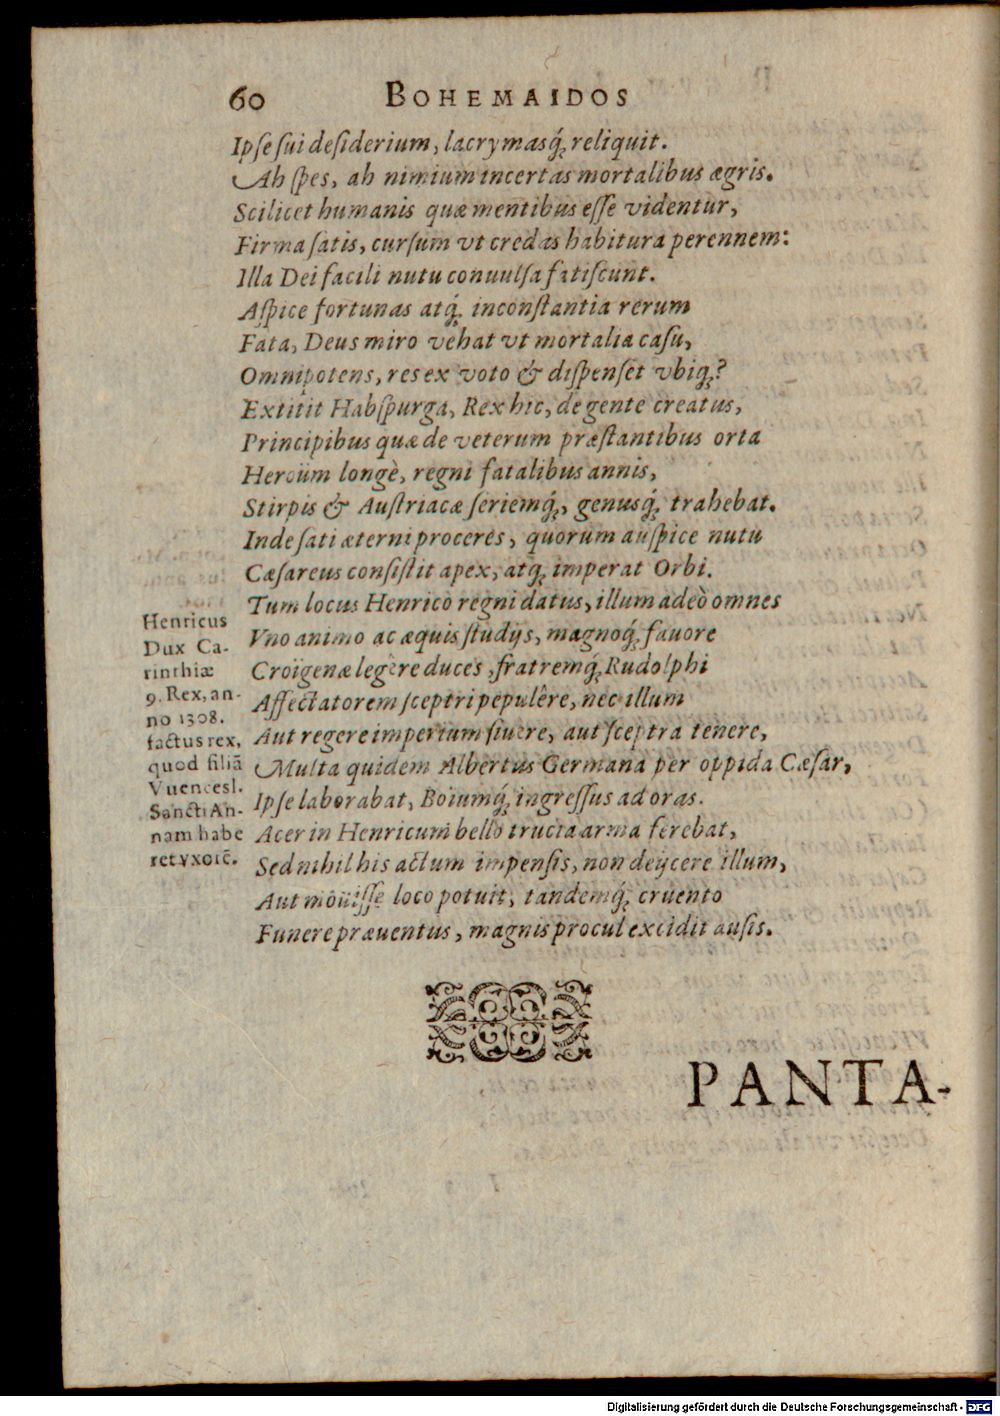 60 BOHEMAIDOS
Ipse sui desiderium, lacrymasq́; reliquit.
Ah spes, ah nimium incertas mortalibus ægris.
Scilicet humanis quæ mentibus esse videntur,
Firma satis, cursum vt credas habitura perennem:
Illa Dei facili nutu conuulsa fatiscunt.
Aspice fortunas atq́; inconstantia rerum
Fata, Deus miro vehat vt mortalia casu,
Omnipotens, res ex voto & dispenset vbiq́;?
Extitit Habspurga, Rex hic, de gente creatus,
Principibus quæ de veterum præstantibus orta
Heroüm longè, regni fatalibus annis,
Stirpis & Austriacæ seriemq́;, genusq́; trahebat.
Inde sati æterni proceres, quorum auspice nutu
Cæsareus consistit apex, atq; imperat Orbi.
Tum locus Henrico regni datus, illum adeò omnes
Vno animo ac æquis studijs, magnoq́; fauore
Croïgenæ legère duces, fratremq́; Rudolphi
Affectatorem sceptri pepulêre, nec illum
Aut regere imperium siuêre, aut sceptra tenere,
Multa quidem Albertus Germana per oppida Cæsar,
Ipse laborabat, Boiumq́; ingressus ad oras.
Acer in Henricum bello trucia arma ferebat,
Sed nihil his actum impensis, non deijcere illum,
Aut mouisse loco potuit, tandemq́; cruento
Funere præuentus, magnis procul excidit ausis.
Henricus
Dux Ca-
rinthiæ
9. Rex, an-
no 1308.
factus rex,
quod filiã
Vuencesl.
Sancti An-
nam habe
ret vxorẽ.
PANTA-
Digitalisierung gefördert durch die Deutsche Forschungsgemeinschaft - DFG